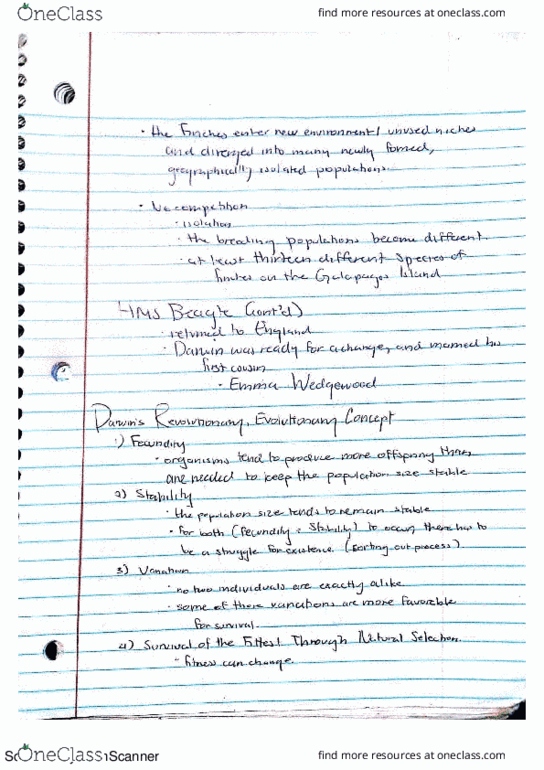 OneClass
find more resources at oneclass.com
• the Finches enter new environment/ unused niches
and diverged into many newly formed,
geographically isolated populations.
• No competition
• isolation
• the breeding populations become different.
• at least thirteen different species of
finches on the Galapagos Island
HMS Beagle (cont'd)
• returned to England
• Darwin was ready for a change, and married his
first cousin
• Emma Wedgewood
Darwin's Revolutionary, Evolutionary Concept
1) Fecundity
• organisms tend to produce more offspring than
are needed to keep the population size stable
2) Stability
• the population size tends to remain stable
• for both (fecundity & stability) to occur, there has to
be a struggle for existence. (sorting out process).
3) Variation
• no two individuals are exactly alike
• some of these variations are more favorable
for survival.
4) Survival of the Fittest Through Natural Selection.
- fitness can change.
OneClass
Scanner
find more resources at oneclass.com